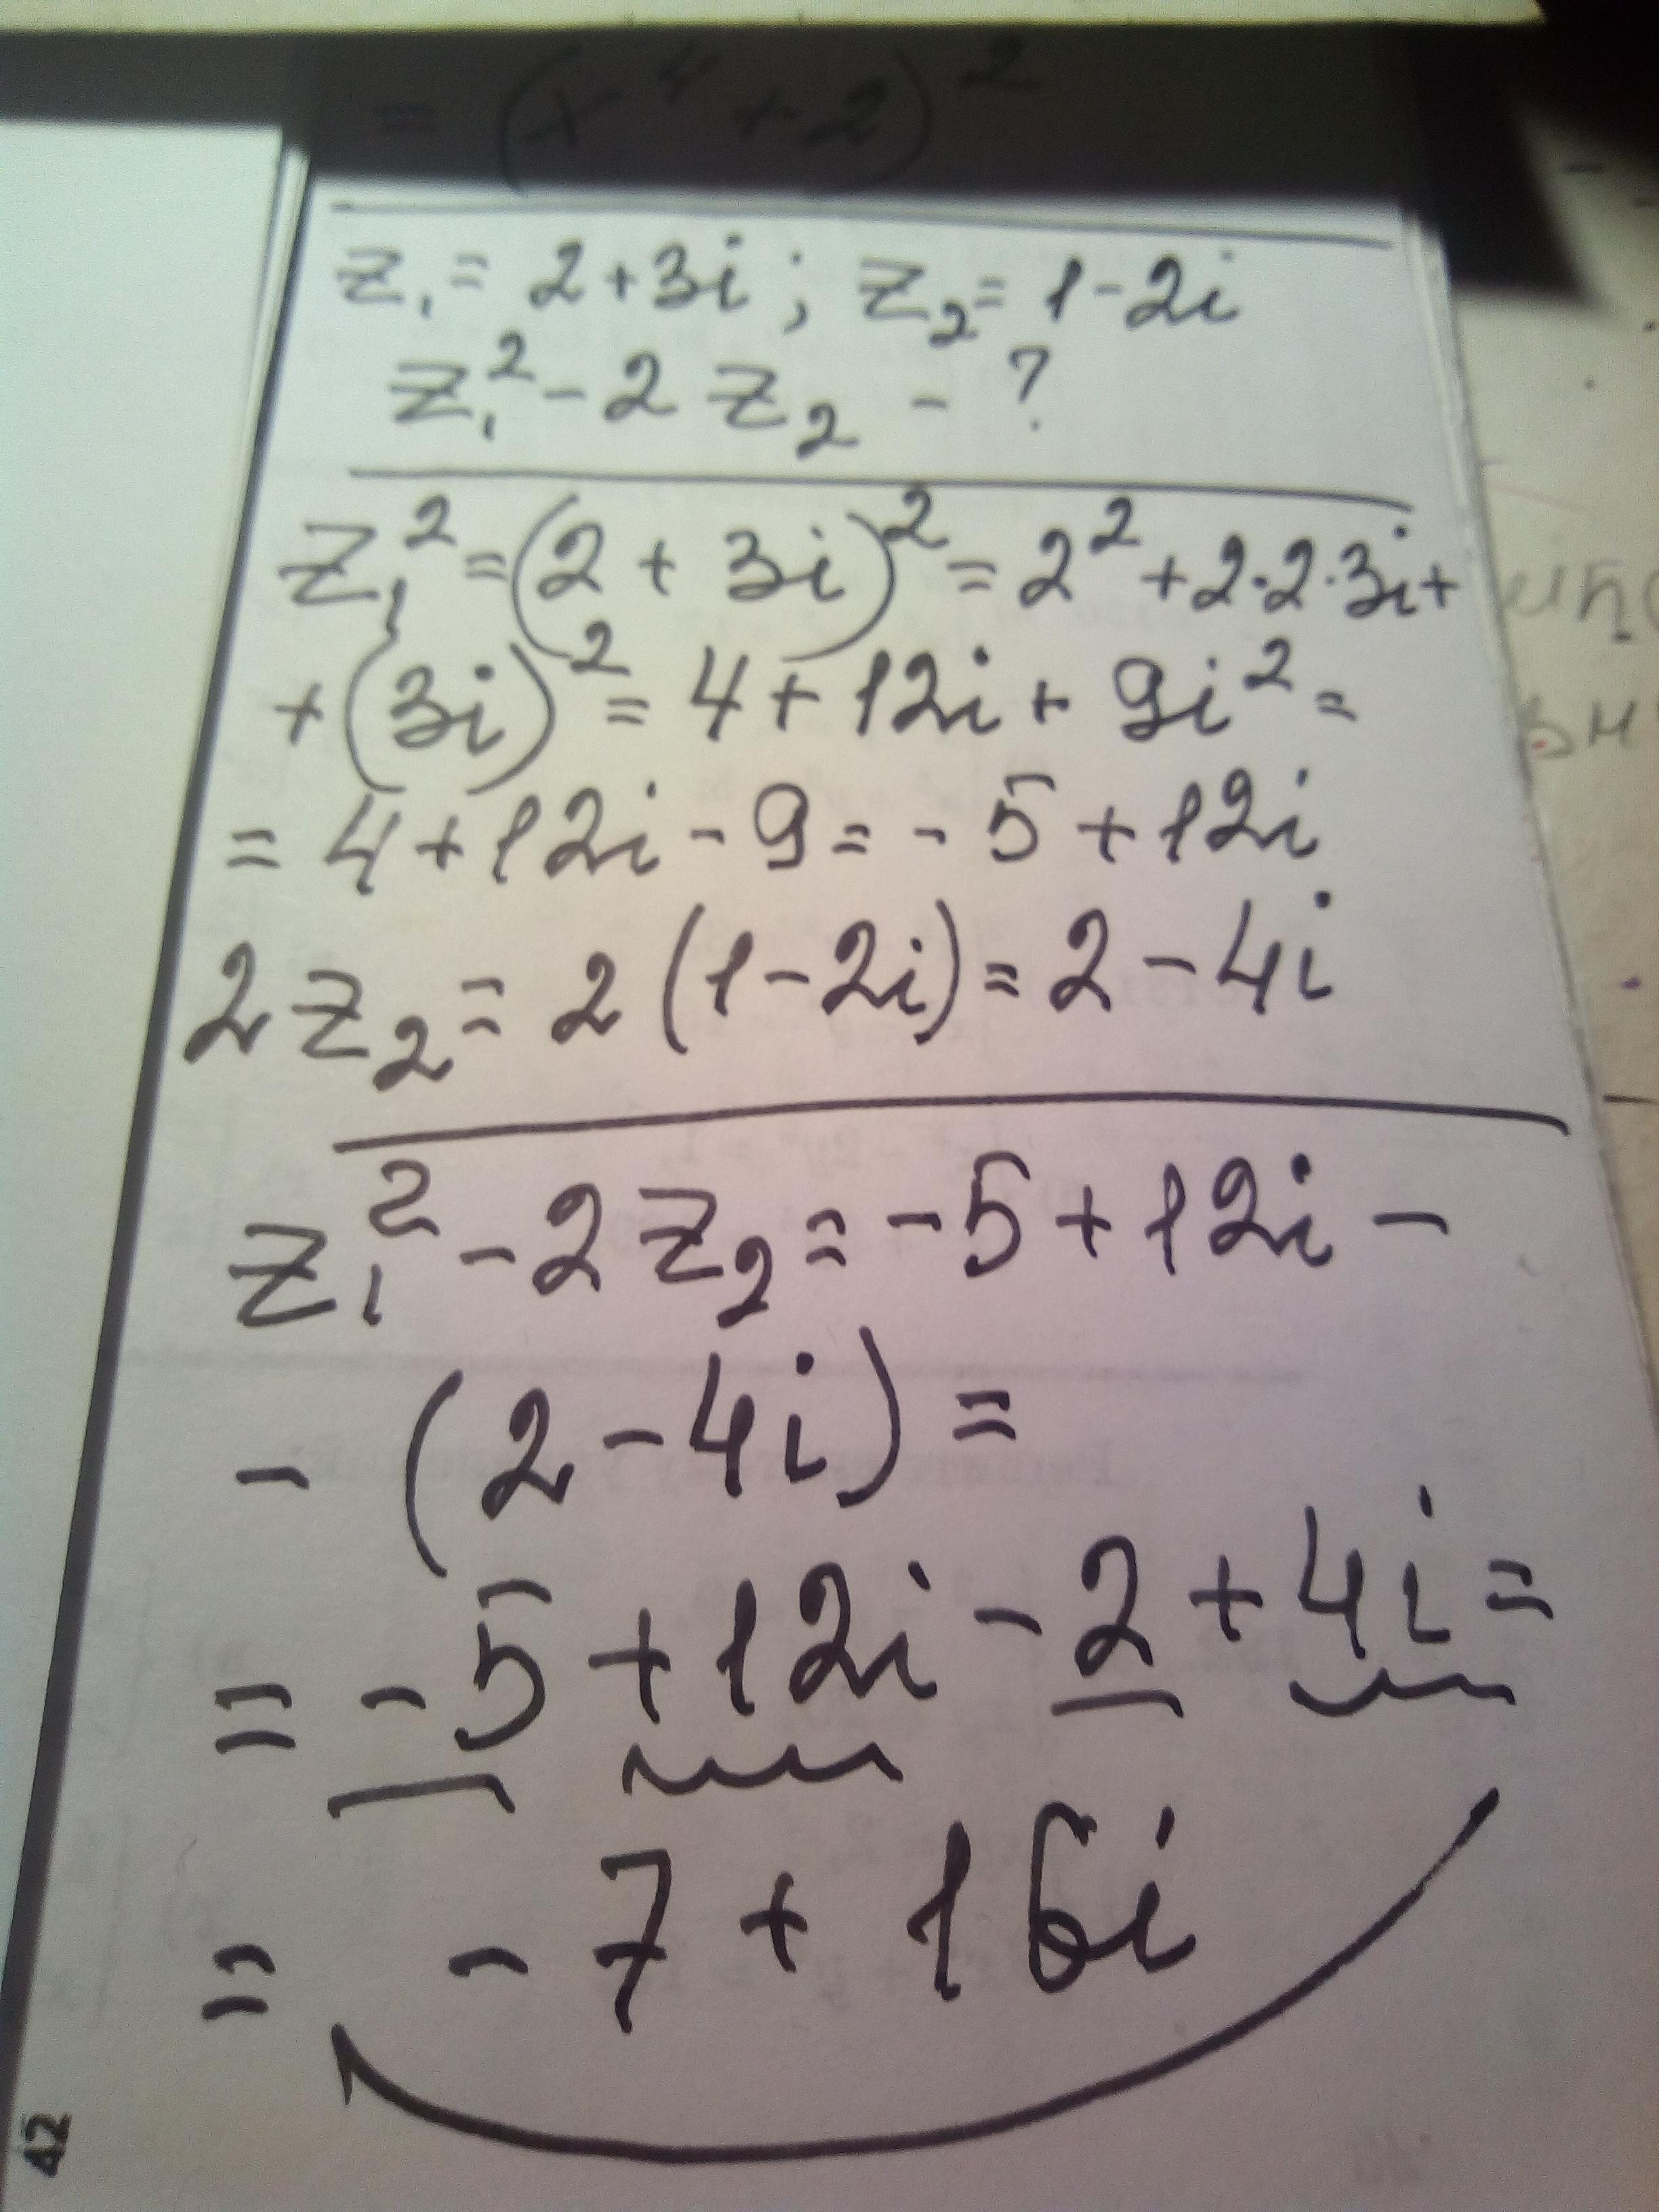 = (x⁴ + 2)²
z₁ = 2 + 3i ; z₂ = 1 - 2i
z₁² - 2 z₂ - ?
z₁² = (2 + 3i)² = 2² + 2·2·3i +
+ (3i)² = 4 + 12i + 9i² =
= 4 + 12i - 9 = - 5 + 12i
2 z₂ = 2 (1 - 2i) = 2 - 4i
z₁² - 2 z₂ = - 5 + 12i -
- (2 - 4i) =
= - 5 + 12i - 2 + 4i =
= - 7 + 16i
42